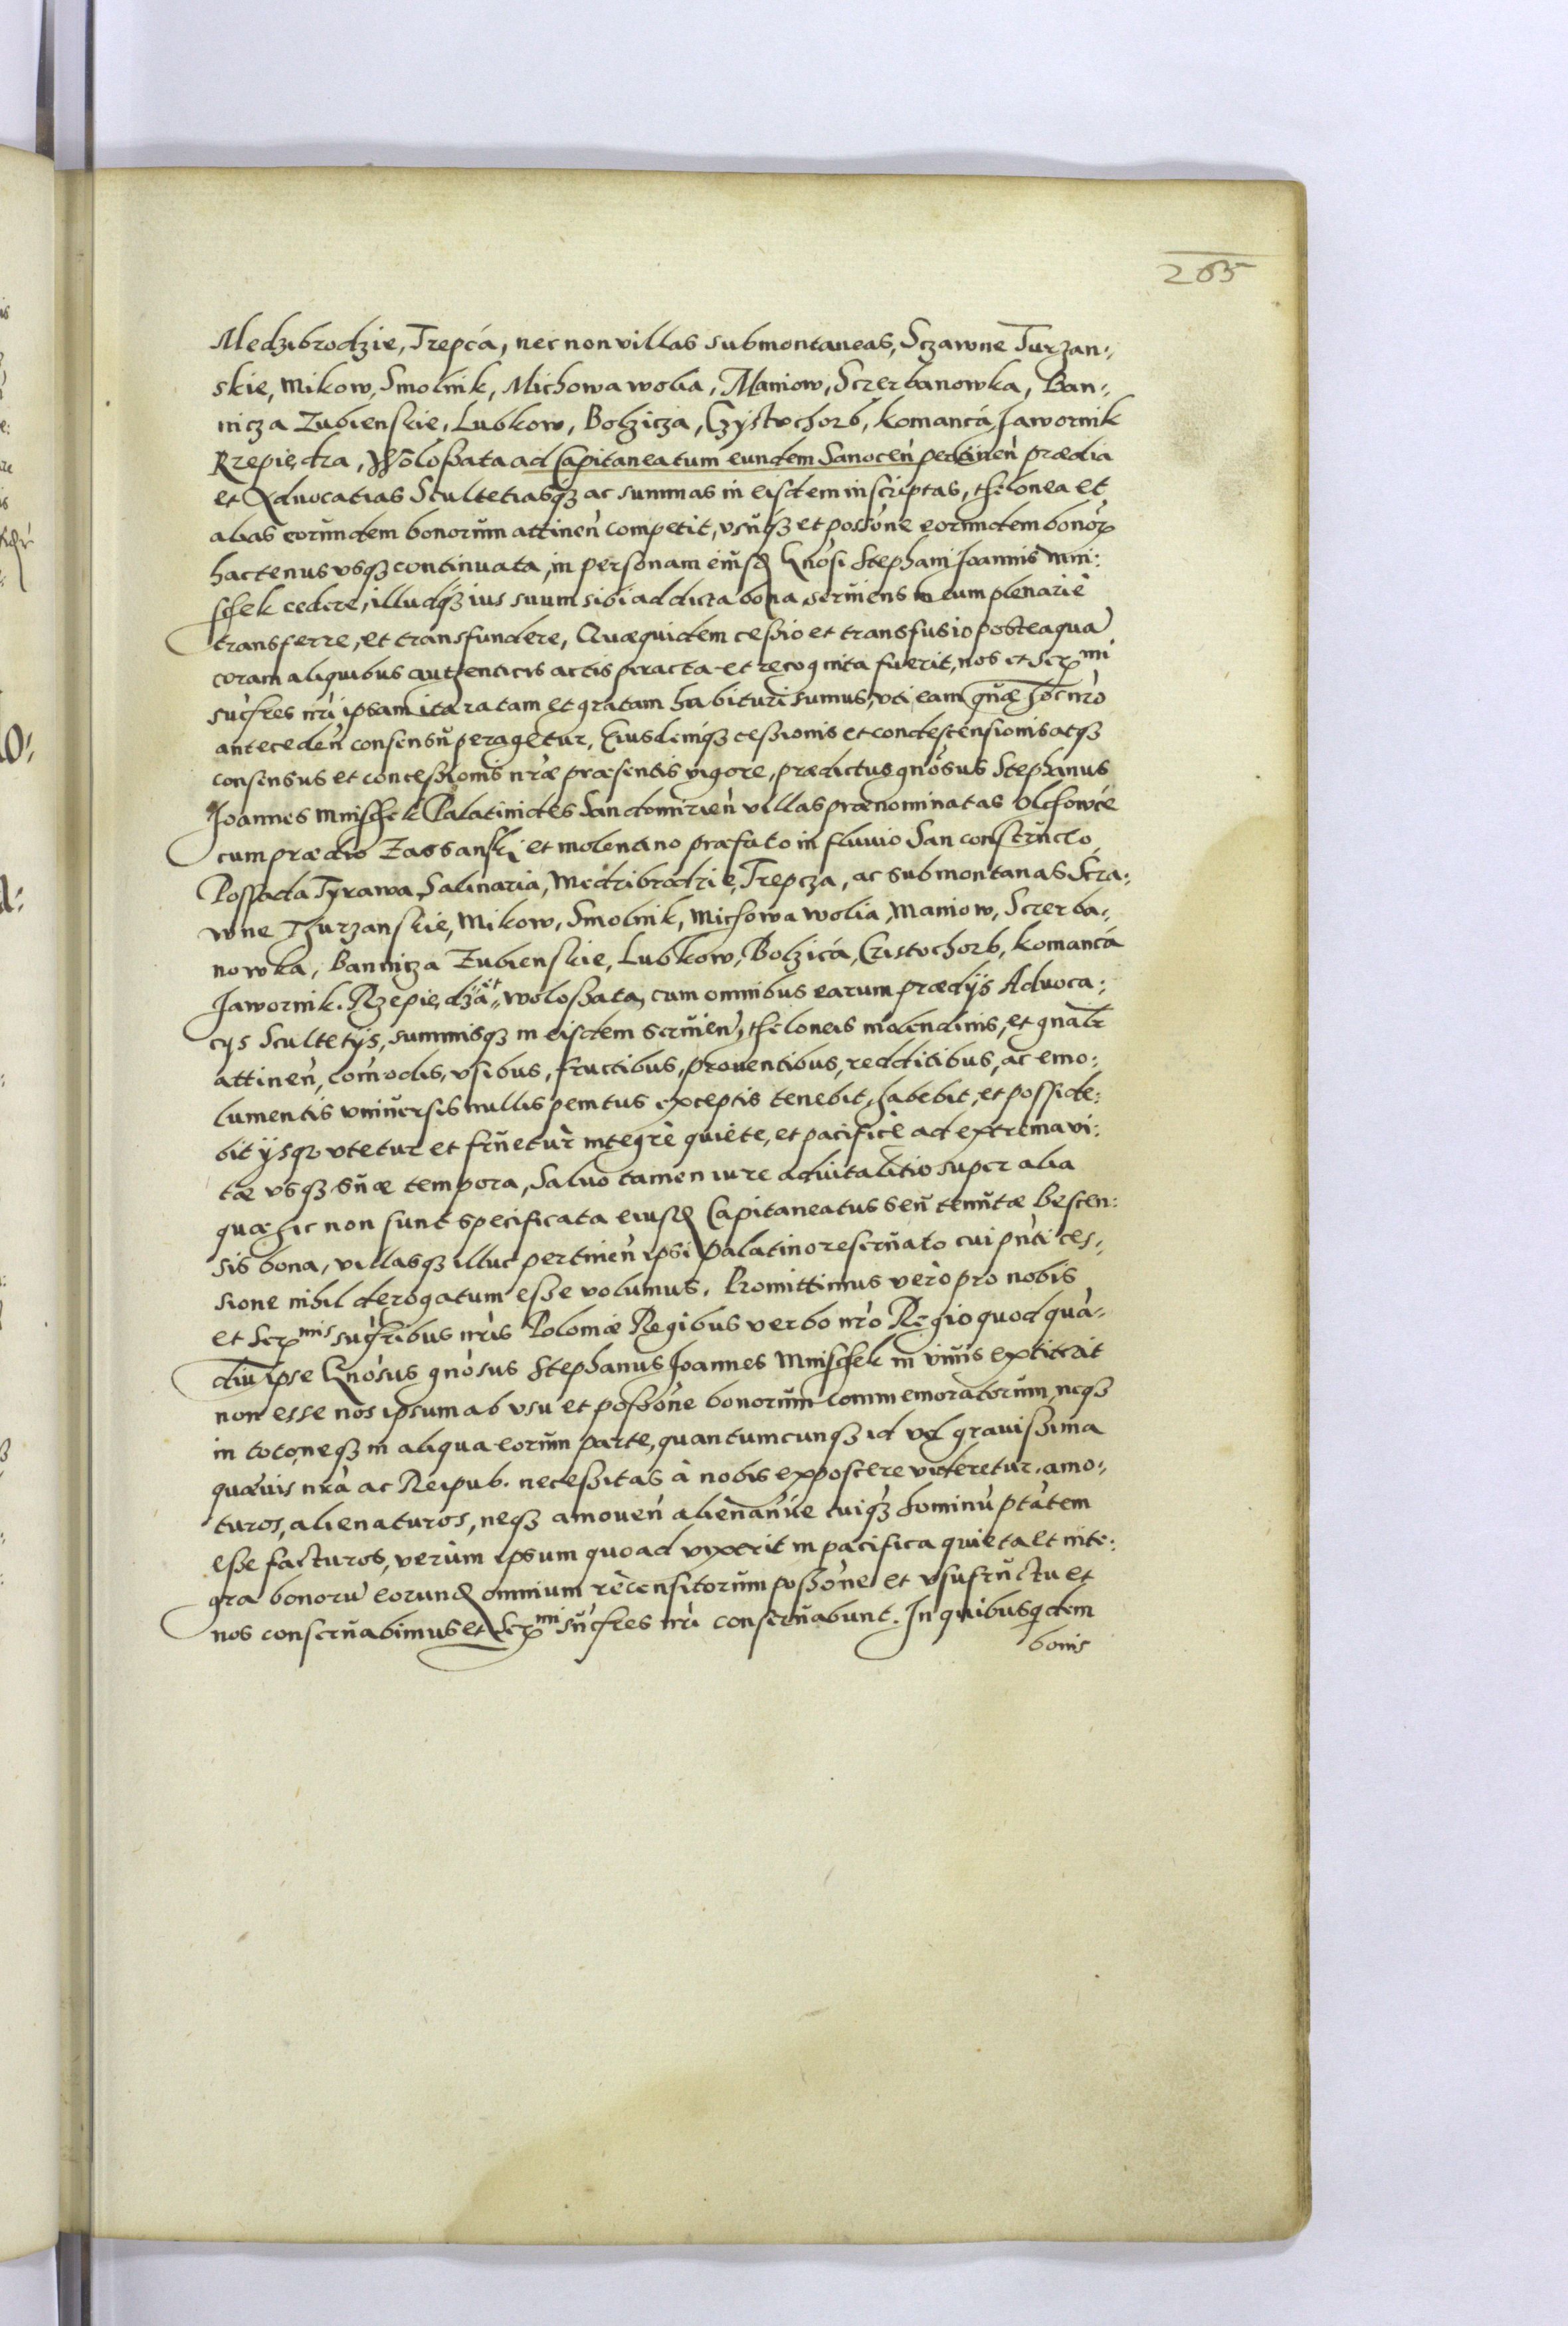 265
Medzibrodzie, Trepcá, nec non villas submontaneas, Sczawne Turzan:,
skie, Mikow, Smolnik, Michowa wolia, Maniow, Sczerbanowka, Ban:,
nicza Zubienskie, Lubkow, Bolzicza, Czystochorb, Komancá Jawornik
Rzepiedza, Woloßata ad Capitaneatum eundem Sanocen̄ pertinen̄ prædia
et Aduocatias Scultetiasq₃ ac summas in eisdem inscriptas, thelonea et
alias eorundem bonorum attinen̄ competit, vsuq₃ et possōne eorundem bonor̃
hactenus vsq₃ continuata, in personam eiusd̃ Gnōsi Stephani Joannis Mni:
schek cedere, illudq₃ ius suum sibi ad dicta bona seruiens in eum plenariè
transferre, et transfundere, Quæquidem ceßio et transfusio posteaquā
coram aliquibus authenticis actis peracta et recognita fuerit, nos et Ser^mi
suc̃res nr̄i ipsam ita ratam et gratam habituri sumus, vti eam quæ hoc nr̄o
anteceden̄ consensu peragetur, Eiusdemq₃ ceßionis et condescensionis atq₃
consensus et conceßionis nr̄æ præsentis vigore, prædictus gnōsus Stephanus
Joannes Mnischek Palatinides Sandomirien̄ villas prænominatas Olchowce
cum prædio Zassanski et molendino præfato in fluuio San constructo
Possada Tyrawa Salinaria, Medzibrodzie, Trepcza, ac submontanas Scza:
wne Thurzanskie, Mikow, Smolnik, Michowa wolia, Maniow, Sczerba:,
nowka, Bannicza Zubienskie, Lubkow, Bolzicá, Czistochorb, Komancá
Jawornik. Rzepiedzá et woloßata, cum omnibus earum prædijs Aduoca:
cijs Scultetijs, summisq₃ in eisdem seruien̄, theloneis molendinis, et gnalr̄
attinen̄, com̄odis, vsibus, fructibus, prouentibus, redditibus, ac emo:
lumentis vniuersis nullis penitus exceptis tenebit, habebit, et posside:
bit ijsq₃ vtetur et fruetur integrè quiete, et pacificè ad extrema vi:
tæ vsq₃ suæ tempora, Saluo tamen iure aduitalitio super alia
quæ hic non sunt specificata eiusd̃ Capitaneatus seu tenutæ Bescen:
sis bona, villasq₃ illuc pertinen̄ ipsi Palatino reseruato cui pn̄ti ces:,
sione nihil derogatum eße volumus. Promittimus verò pro nobis
et Ser^mis suc̃ribus nr̄is Poloniæ Regibus verbo nr̄o Regio quod quā:
diu ipse Gnōsus gnōsus Stephanus Joannes Mnischek in viuis extiterit
non esse nos ipsum ab vsu et poßōne bonorum commemoratorum neq₃
in toto, neq₃ in aliqua eorum parte, quantumcunq₃ id vel grauißima
quæuis nr̄a ac Reipub. neceßitas à nobis exposcere videretur, amo:
turos, alienaturos, neq₃ amouen̄ alienan̄ue cuiq₃ hominū ptātem
eße facturos, verùm ipsum quoad vixerit in pacifica quieta et inte:
gra bonorū eorund̃ omnium recensitorum poßōne et vsufructu et
nos conseruabimus et Ser^mi suc̃res nr̄i conseruabunt. In quibusq̃dem
bonis